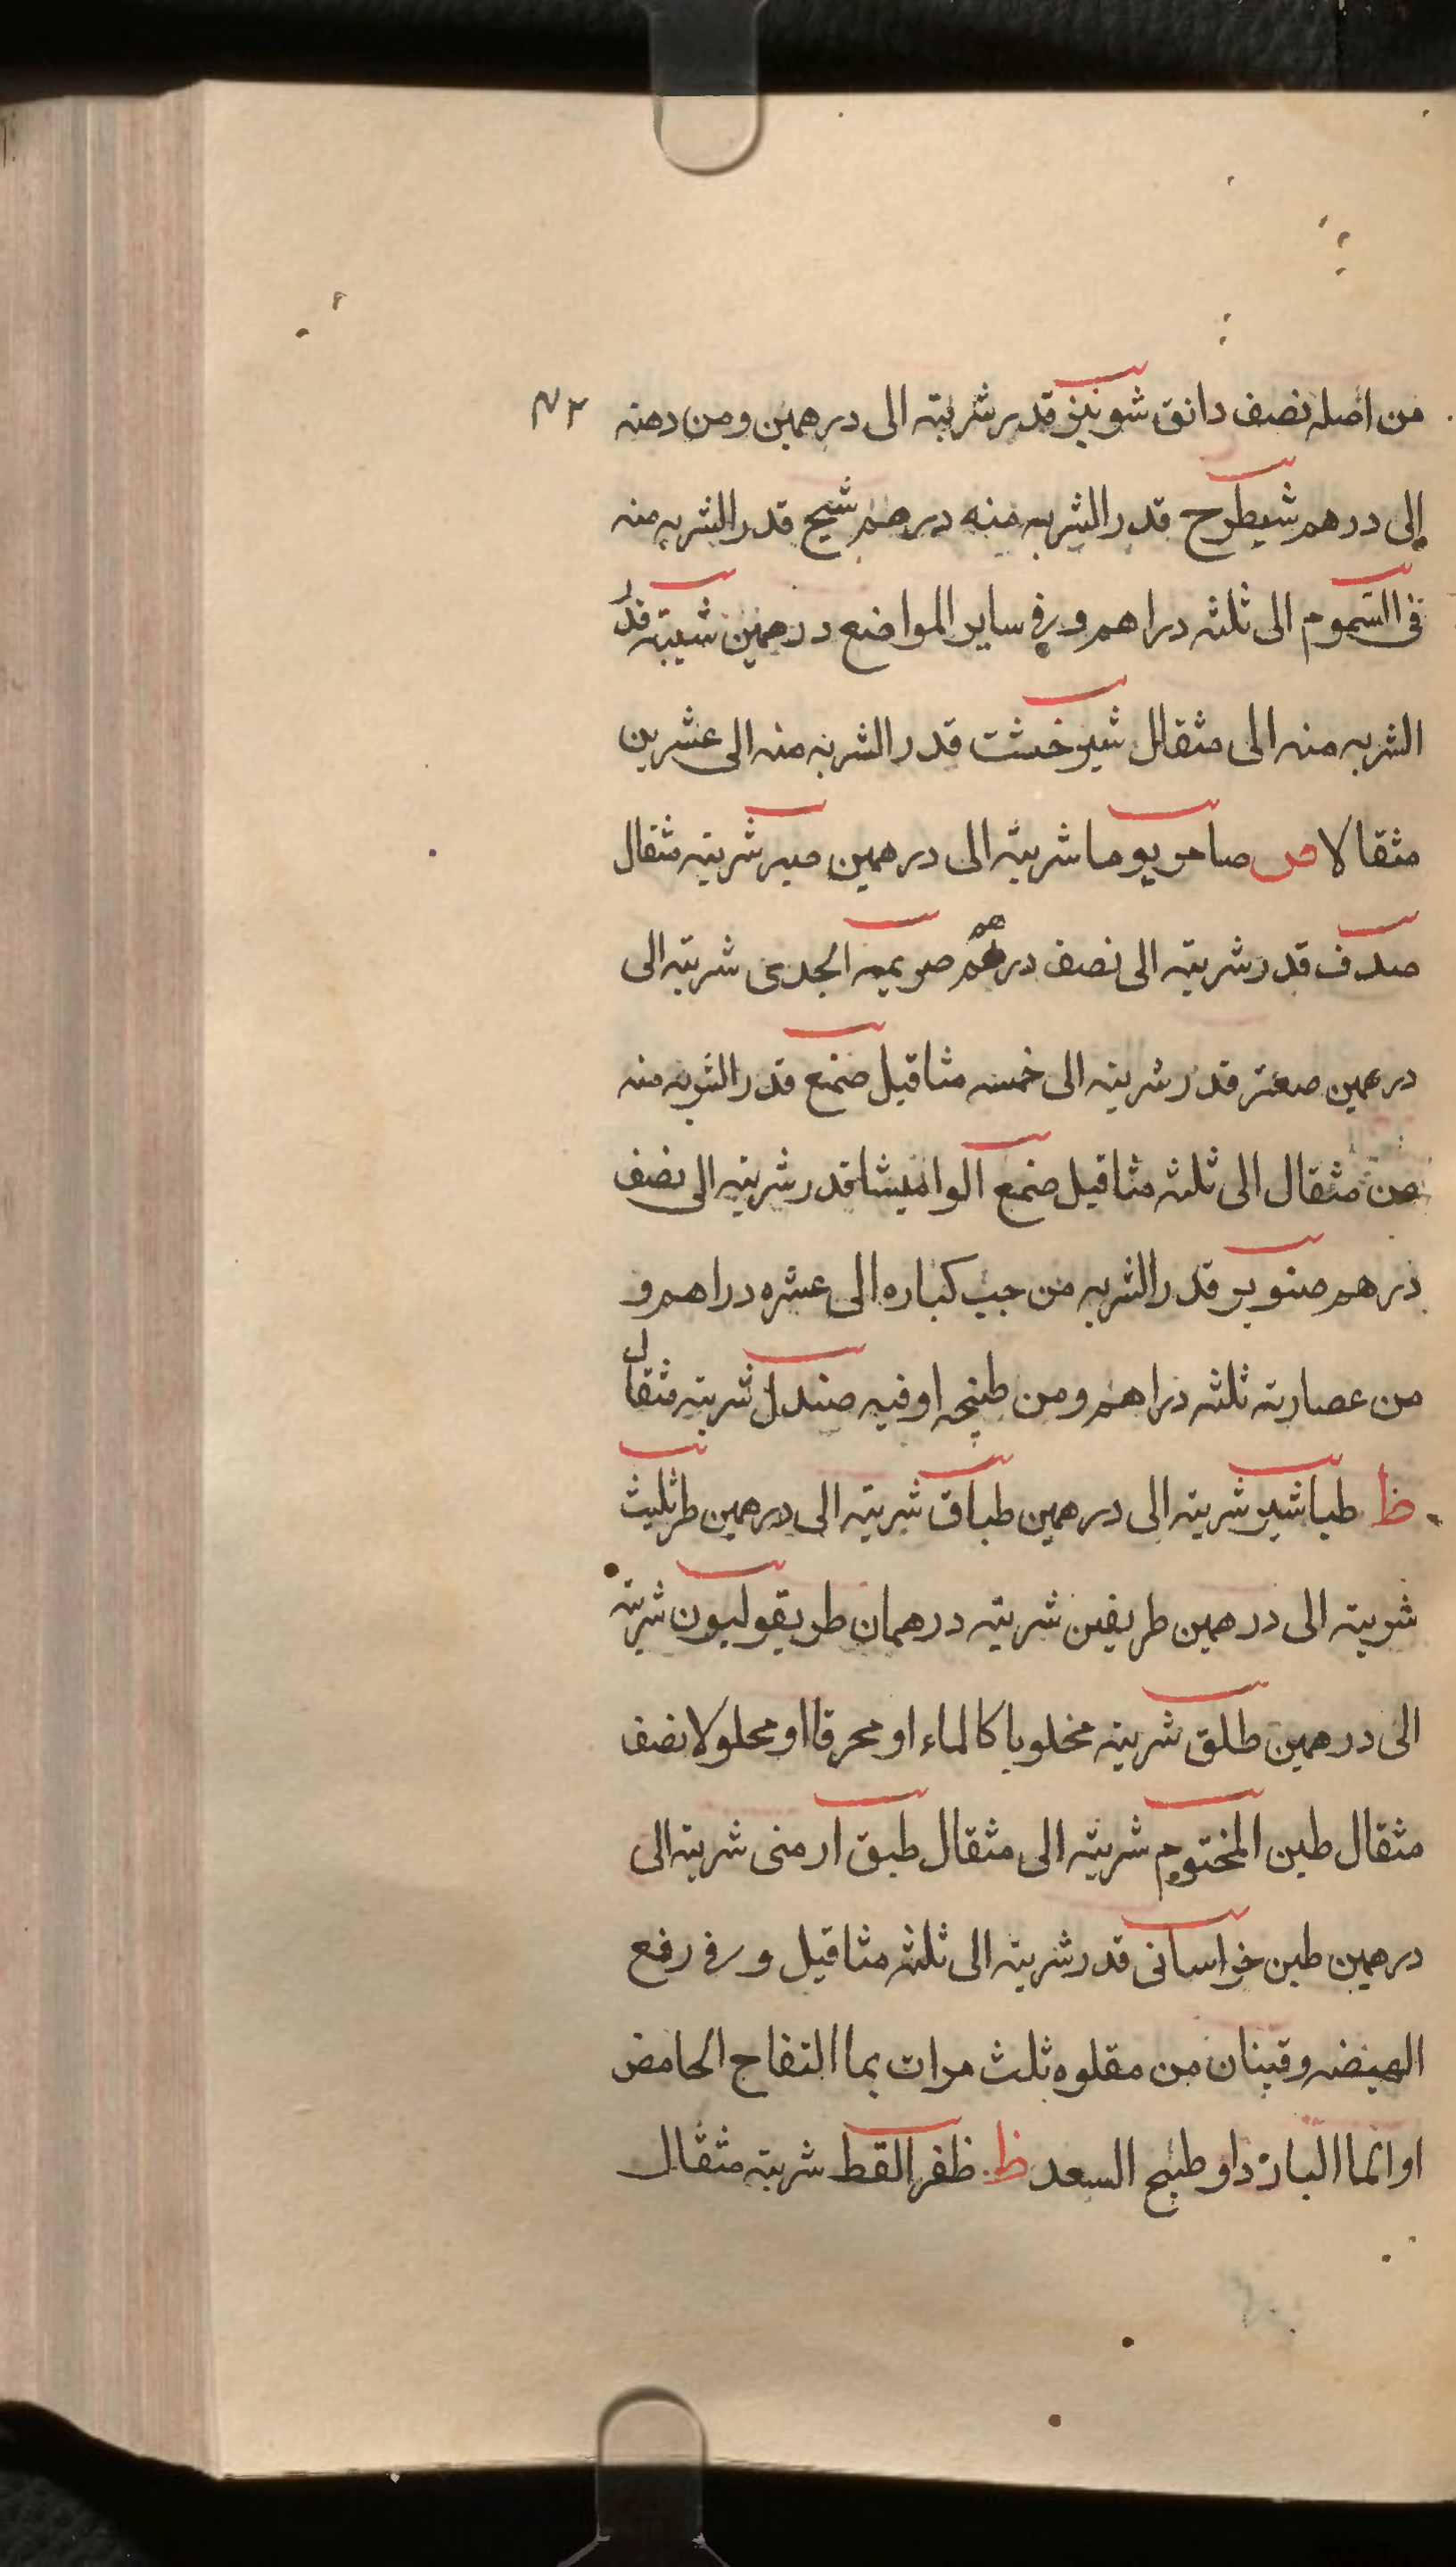 من اصله نصف دانق شونيز قدر شربته الى درهمين ومن دهنه
إلى درهم شيطرح قدر الشربه منه درهم شيح قدر الشربه منه
فى السموم الى ثلثه دراهم وفي ساير المواضع درهمين شيبه قدر
الشربه منه الى مثقال شيرخشت قدر الشربه منه الى عشرين
مثقالا ص صامريوما شربته الى درهمين صبر شربته مثقال
صدف قدر شربته الى نصف درهم الجدى شربته الى
درهمين صعتر قدر شربته الى خمسه مثاقيل صمغ قدر الشربه منه
من مثقال الى ثلثه مثاقيل صمغ الواميشا قدر شربته الى نصف
درهم صنوبر قدر الشربه من حب كباره الى عشره دراهم و
من عصارته ثلثه دراهم ومن طبيخه اوقيه صندل شربته مثقال
ظ طباشير شربته الى درهمين طباق شربته الى درهمين طرثليث
شربته الى درهمين طريفين شربته درهمان طريقوليون شربته
الى درهمين طلق شربته محلوبا كالماء او محرقا او محلولا نصف
مثقال طين المختوم شربته الى مثقال طبق ارمنى شربته الى
درهمين طين خراسانى قدر شربته الى ثلثه مثاقيل وفى رفع
الهيضه وقيتان من مقلوه ثلث مرات بما التفاح الحامض
او الما البارد او طبيخ السعد ظ ظفر القط شربته مثقال